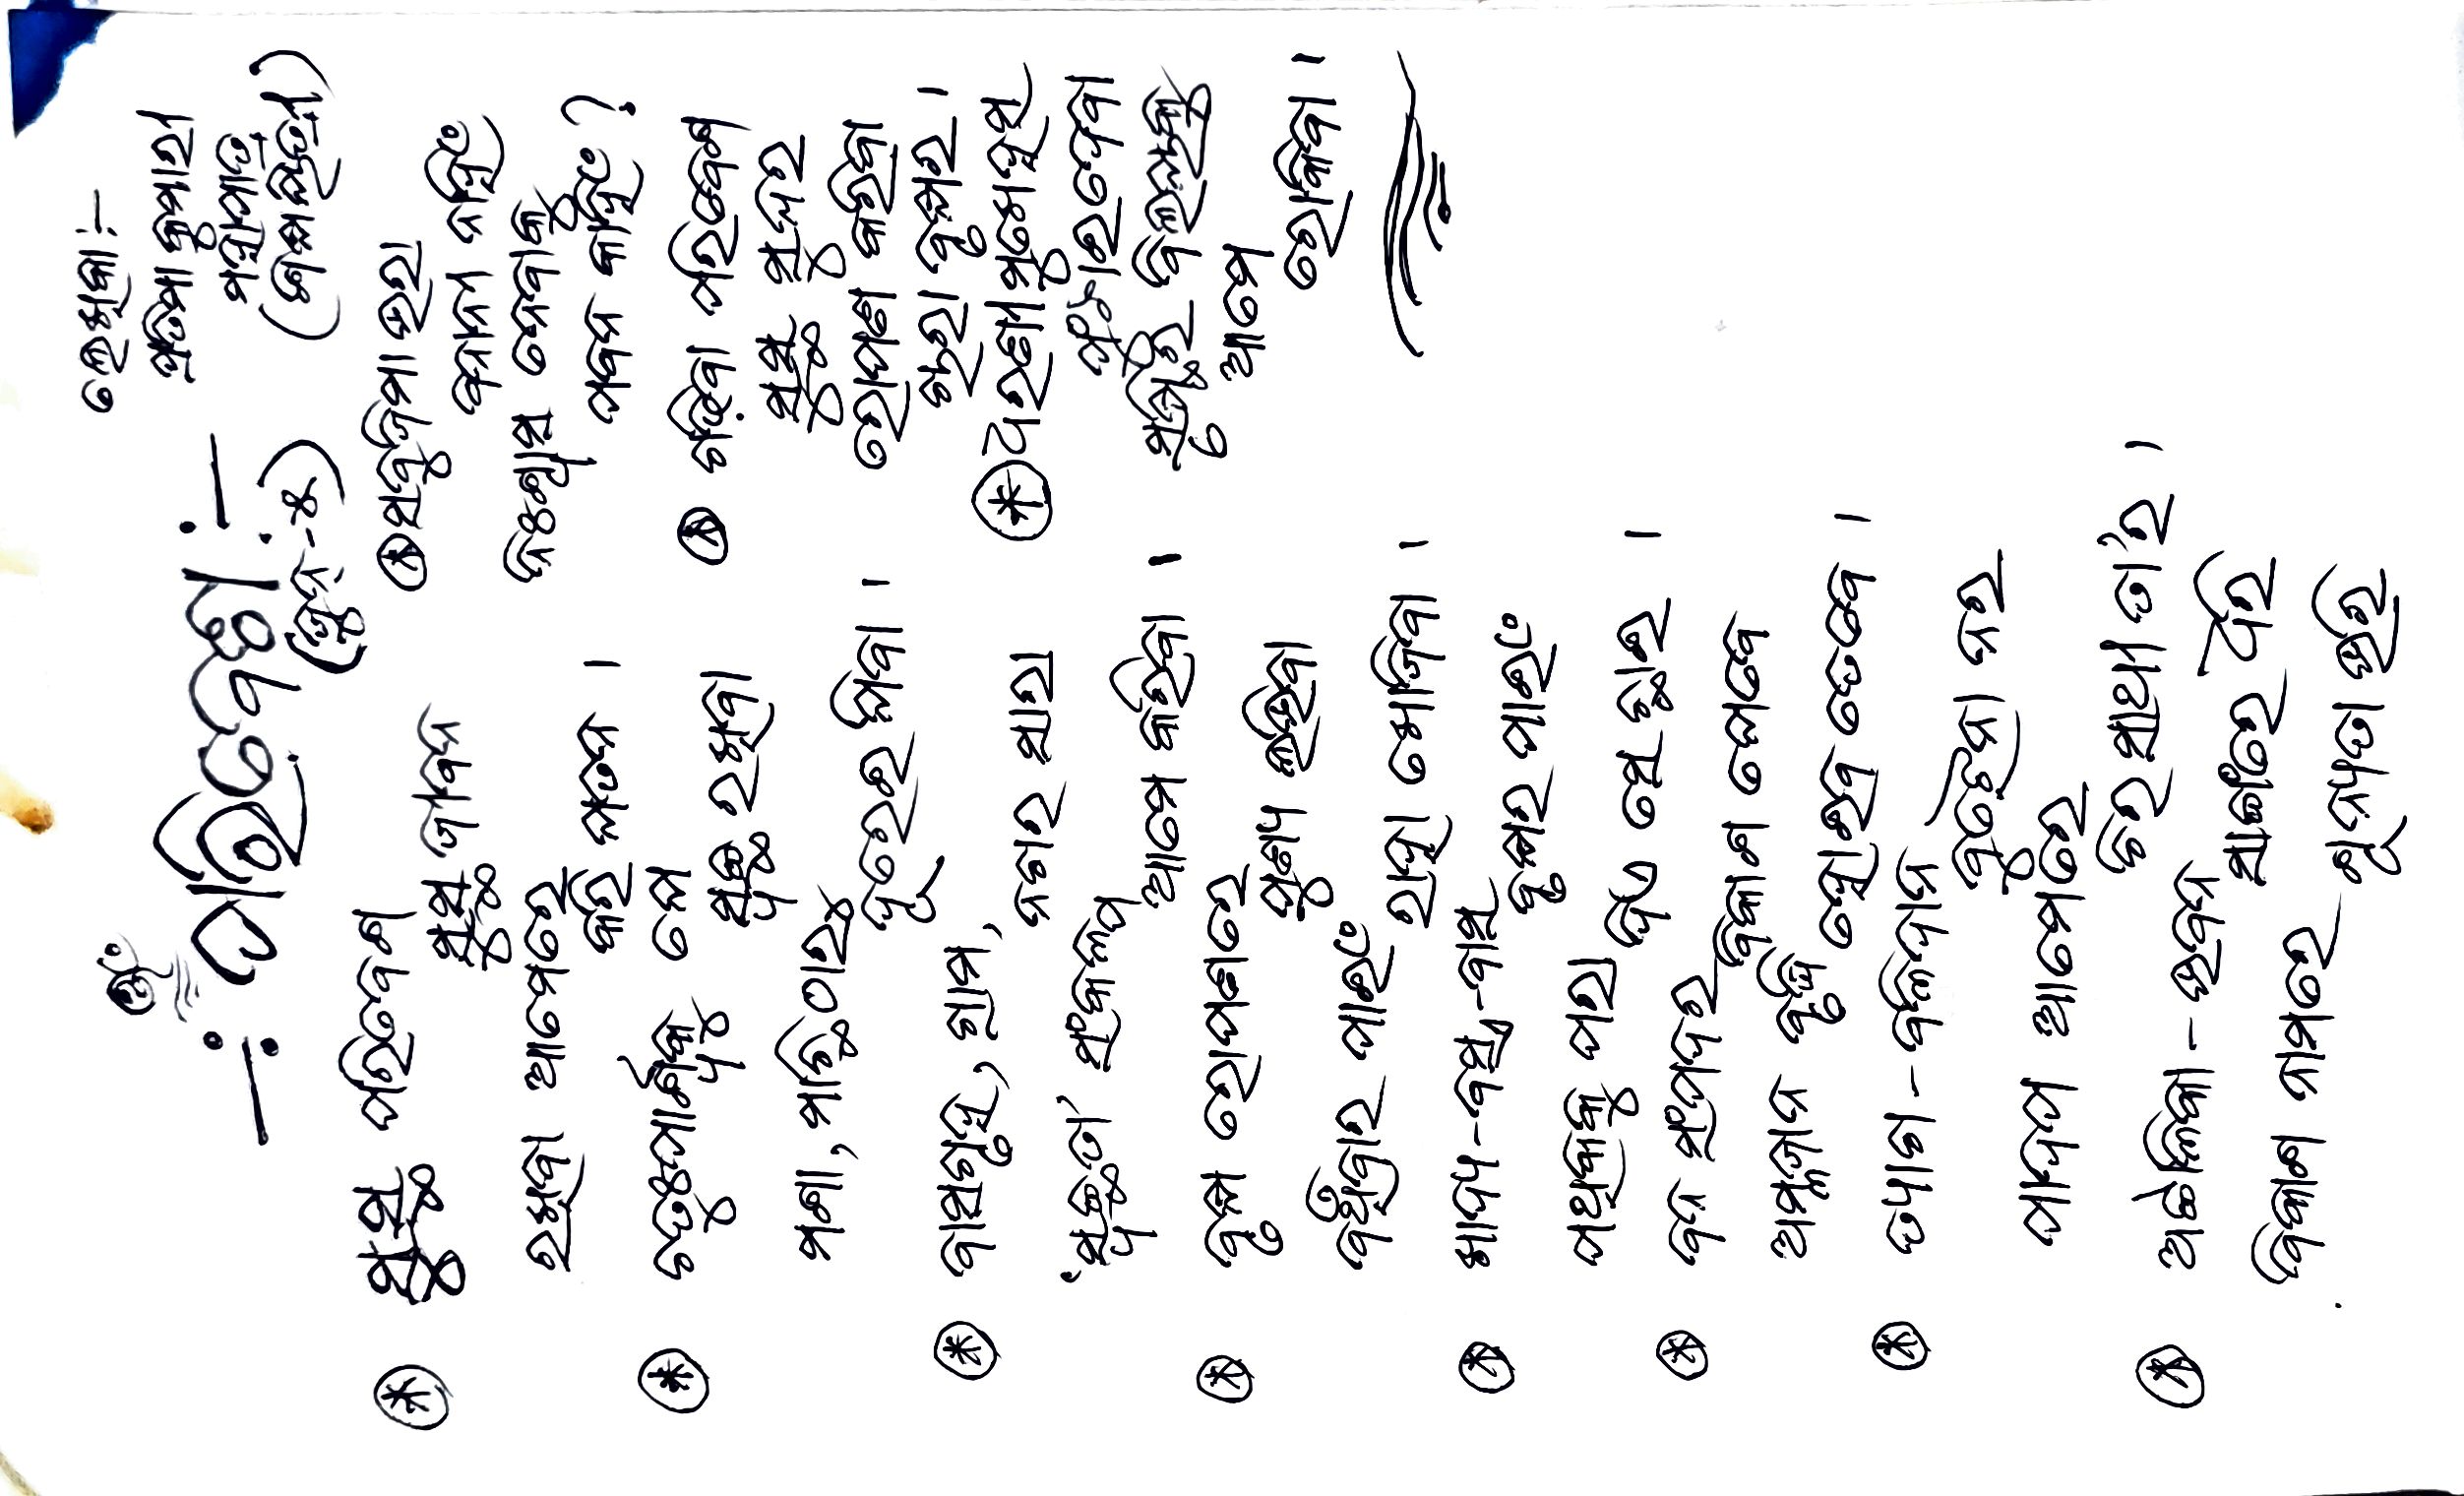 ଓଁ
-: ପରିବେଶ :-
(ଜୁନ୍-୫)
ଲେଖିକା:-
ପ୍ରତିମା କୁମାରୀ
ମହାପାତ୍ର
(ଶିକ୍ଷୟିତ୍ରୀ)
ସୁସ୍ଥ ପରିବେଶ
ସୁସ୍ଥ ଜୀବନ
ରଖିବା ଆମେରେ
କରି ଯତନ ।
ଚତୁଃପାର୍ଶ୍ୱକୁ ଯେ
ସ୍ୱଚ୍ଛ ରଖିବା
ମଶା, ମାଛିଠାରୁ
ଦୂରେଇ ଯିବା ।
ବାସଗୃହ, ଗ୍ରାମ,
ନଗର ସାରା
'ସ୍ୱଚ୍ଛତା' ସଂକଳ୍ପ
ଆମେ କରିବା ।
ବୃକ୍ଷ ରୋପଣରେ
ପୁଣ୍ୟ ଲଭିବା
ବଞ୍ଚିବାର ପାଇଁ
ରାହା ଖୋଜିବା ।
ଖାଦ୍ୟ-ବସ୍ତ୍ର-ବାସ
ବୃକ୍ଷର ପାଇଁ
ପଥିକକୁ ପରା
ଦିଏ ସେ ଛାଇ ।
ବନ ସଂପଦର
ବିକାଶ ଯେବେ
ଅମ୍ଳଜାନ ବୃଦ୍ଧି
ହୋଇବ ତେବେ ।
ତ୍ୟାଗ-ବଳିଦାନ
ବୁଝେନା ନର
ପାଦପ ଆମେରେ
ଚିର ସାଥୀ ତା'ର ।
ଅଟ୍ଟାଳିକା-ଭବନ
ସାଙ୍ଗରେ ଧରି
ବିକାଶ ନାମରେ
ଶୂନ୍ୟତା ଭରି
ସବୁଜିମା ଭରା
ବନାନୀ ନାହିଁ
ନିଃଶ୍ୱାସ ନେବାକୁ
ପବନ କାହିଁ ?
ଗଢ଼ିବା ପରିବେଶ
ସୁସ୍ଥ ସୁନ୍ଦର
ରୋପଣ କରିବା
ଚାରା ବୃକ୍ଷର ।
ଧରଣୀ ମୁଖେ ହସ
ଫୁଟାଇଦେବା
ସୃଷ୍ଟିର ବିଲୟକୁ
ଆମେ
ରୋକିବା ।